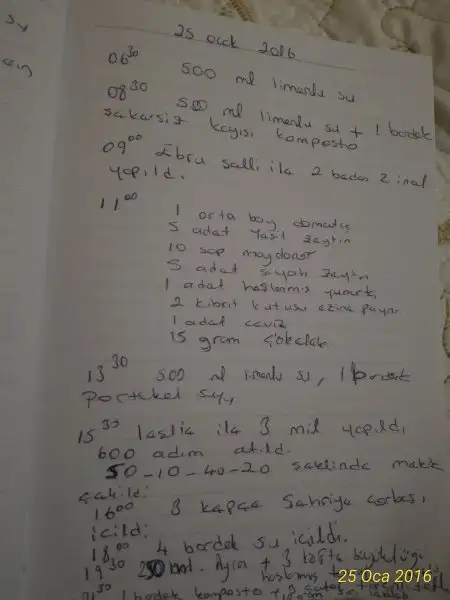 su
25 ocak 2016
06³⁰ 500 ml limonlu su
08³⁰ 500 ml limonlu su + 1 bardak
şekersiz kayısı komposto
09⁰⁰ Ebru şallı ile 2 beden 2 inal
yapıldı.
11⁰⁰
1 orta boy domates
5 adet yeşil zeytin
10 sap maydonoz
5 adet siyah zeytin
1 adet haşlanmış yumurta
2 kibrit kutusu ezine peynir
1 adet ceviz
15 gram çökelek
13³⁰ 500 ml limonlu su, 1 bardak
portakal suyu
15³⁰ lastik ile 3 mil yapıldı,
600 adım atıldı.
50-10-40-20 şeklinde mekik
çekildi.
16⁰⁰ 3 kepçe şehriye çorbası
içildi.
18⁰⁰ 4 bardak su içildi.
19³⁰ 250 ml. Ayran + 3 köfte büyüklüğü
haşlanmış
1 bardak komposto
25 Oca 2016